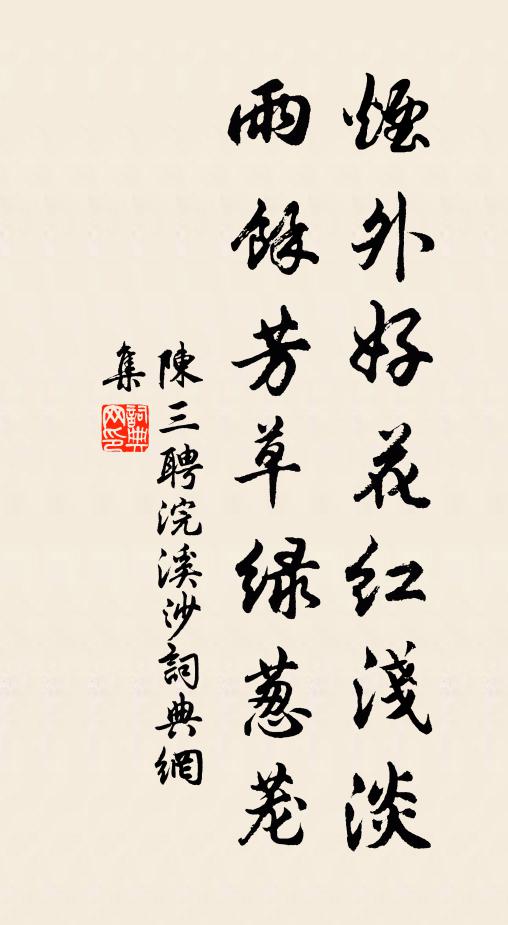 煙外好花紅淺淡
雨餘芳草綠蔥蘢
陳三聘浣溪沙詞典網
集
詞典网印